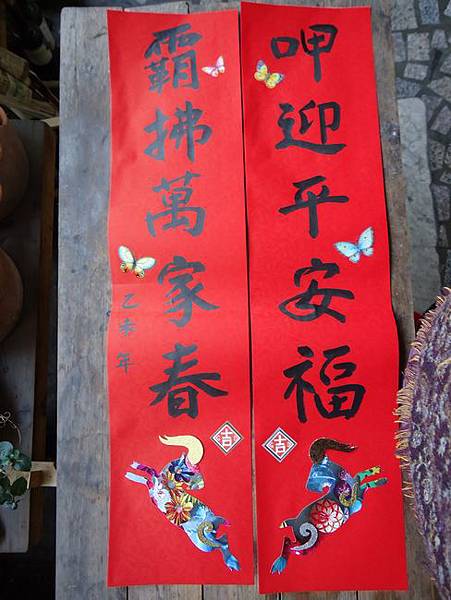 呷迎平安福
吉
霸拂萬家春
乙未年
吉